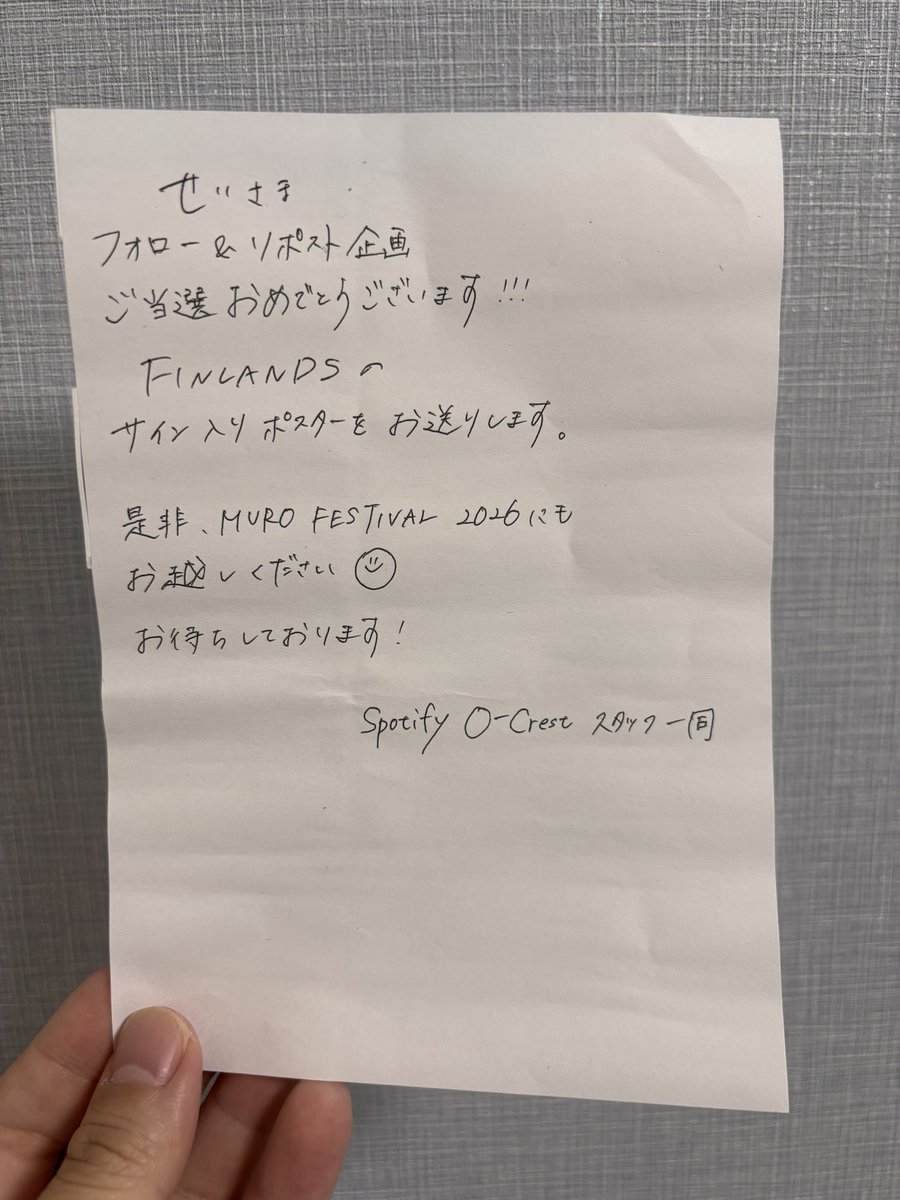 せいさま
フォロー&リポスト企画
ご当選おめでとうございます!!!
FINLANDSの
サイン入りポスターをお送りします。
是非、MURO FESTIVAL 2026にも
お越しください☺
お待ちしております!
Spotify O-Crest スタッフ一同